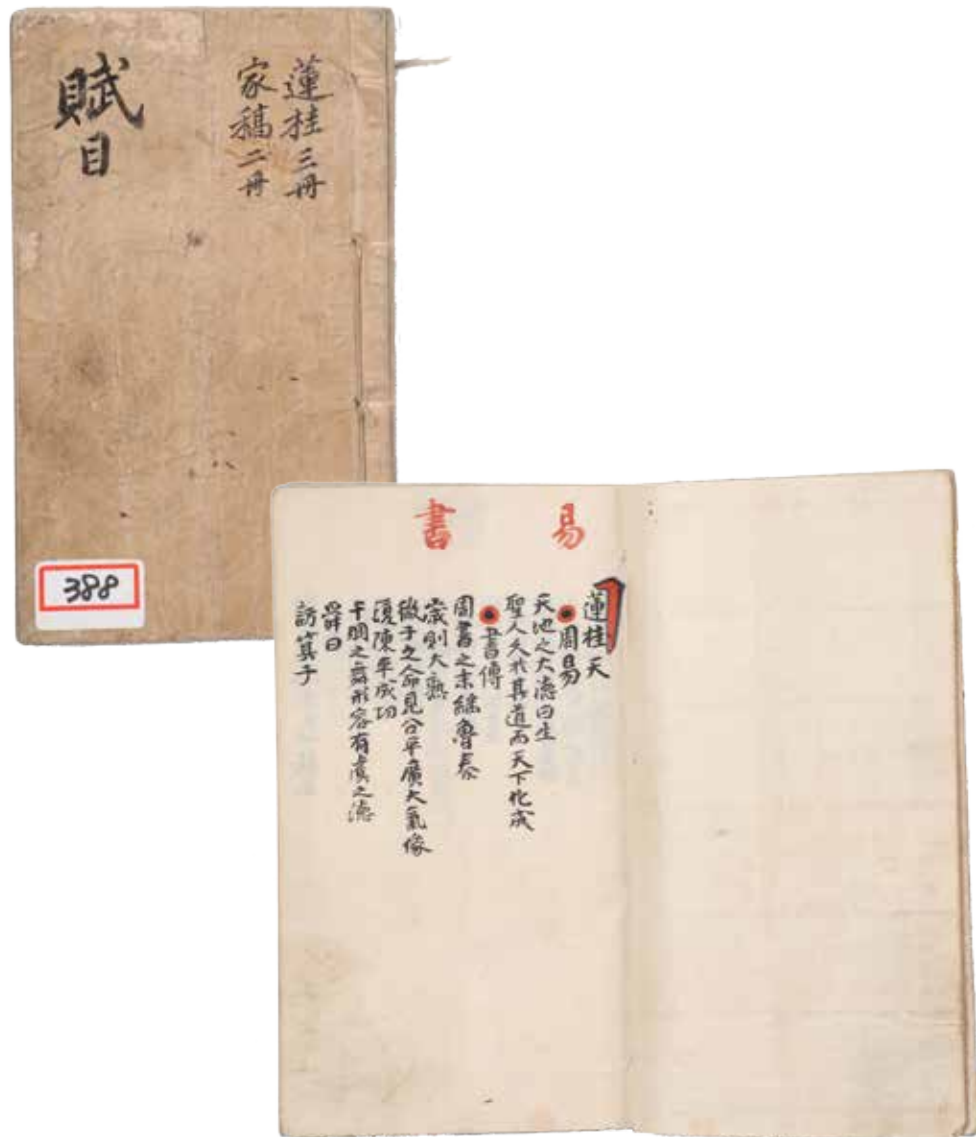 蓮桂三冊
家稿二冊
賦目
388
易
書
蓮桂天
周易
天地之大德曰生
聖人久於其道而天下化成
書傳
周書之末繼魯秦
歲則大熟
微子之命見公平廣大氣像
復陳平成功
干羽之舞形容有虞之德
訪箕子